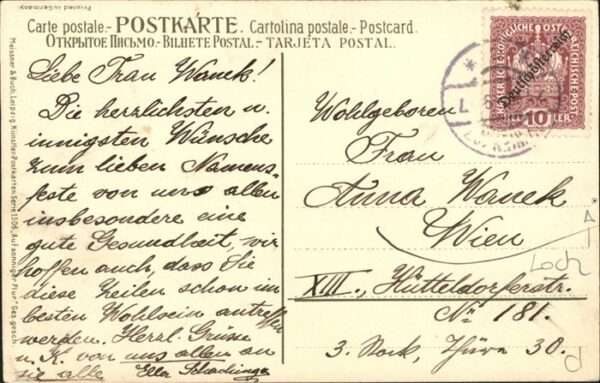 Printed in Germany
Carte postale.- POSTKARTE.- Cartolina postale.- Postcard.
Открытое Письмо.- BILHETE POSTAL.- TARJETA POSTAL.
Liebe Frau Wanek!
Die herzlichsten u.
innigsten Wünsche
zum lieben Namens-
feste von uns allen
insbesondere eine
gute Gesundheit, wir
hoffen auch, dass Sie
diese Zeilen schon im
besten Wohlsein antreffen
werden. Herzl. Grüsse
u. K. von uns allen an
sie alle Ella
Wohlgeboren
Frau
Anna Wanek
Wien
XIII., Hütteldorferstr.
№ 181.
3. Stock, Thüre 30.
Loch
Deutschösterreich
10
Meissner & Buch, Leipzig Künstler-Postkarten Serie